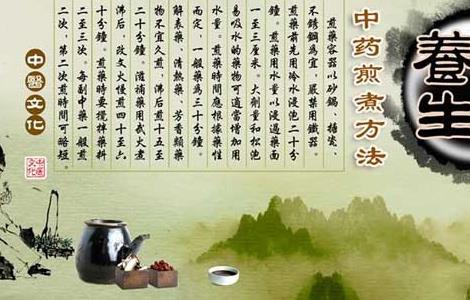 養生
中药煎煮方法
煎藥容器以砂鍋、搪瓷、
不銹鋼爲宜，嚴禁用鐵器。
煎藥前先用冷水浸泡二十分
鐘。煎藥用水量以浸過藥面
一至三厘米。大劑量和松泡
易吸水的藥物可適當增加用
水量。煎藥時間應根據藥性
而定，一般藥爲三十分鐘。
解表藥、清熱藥、芳香類藥
物不宜久煎，沸后煎十五至
二十分鐘。滋補藥用武火煮
沸后，改文火慢煎四十至六
十分鐘。煎藥時要攪拌藥料
二至三次。每劑中藥一般煎
二次，第二次煎時間可略短。
中醫文化